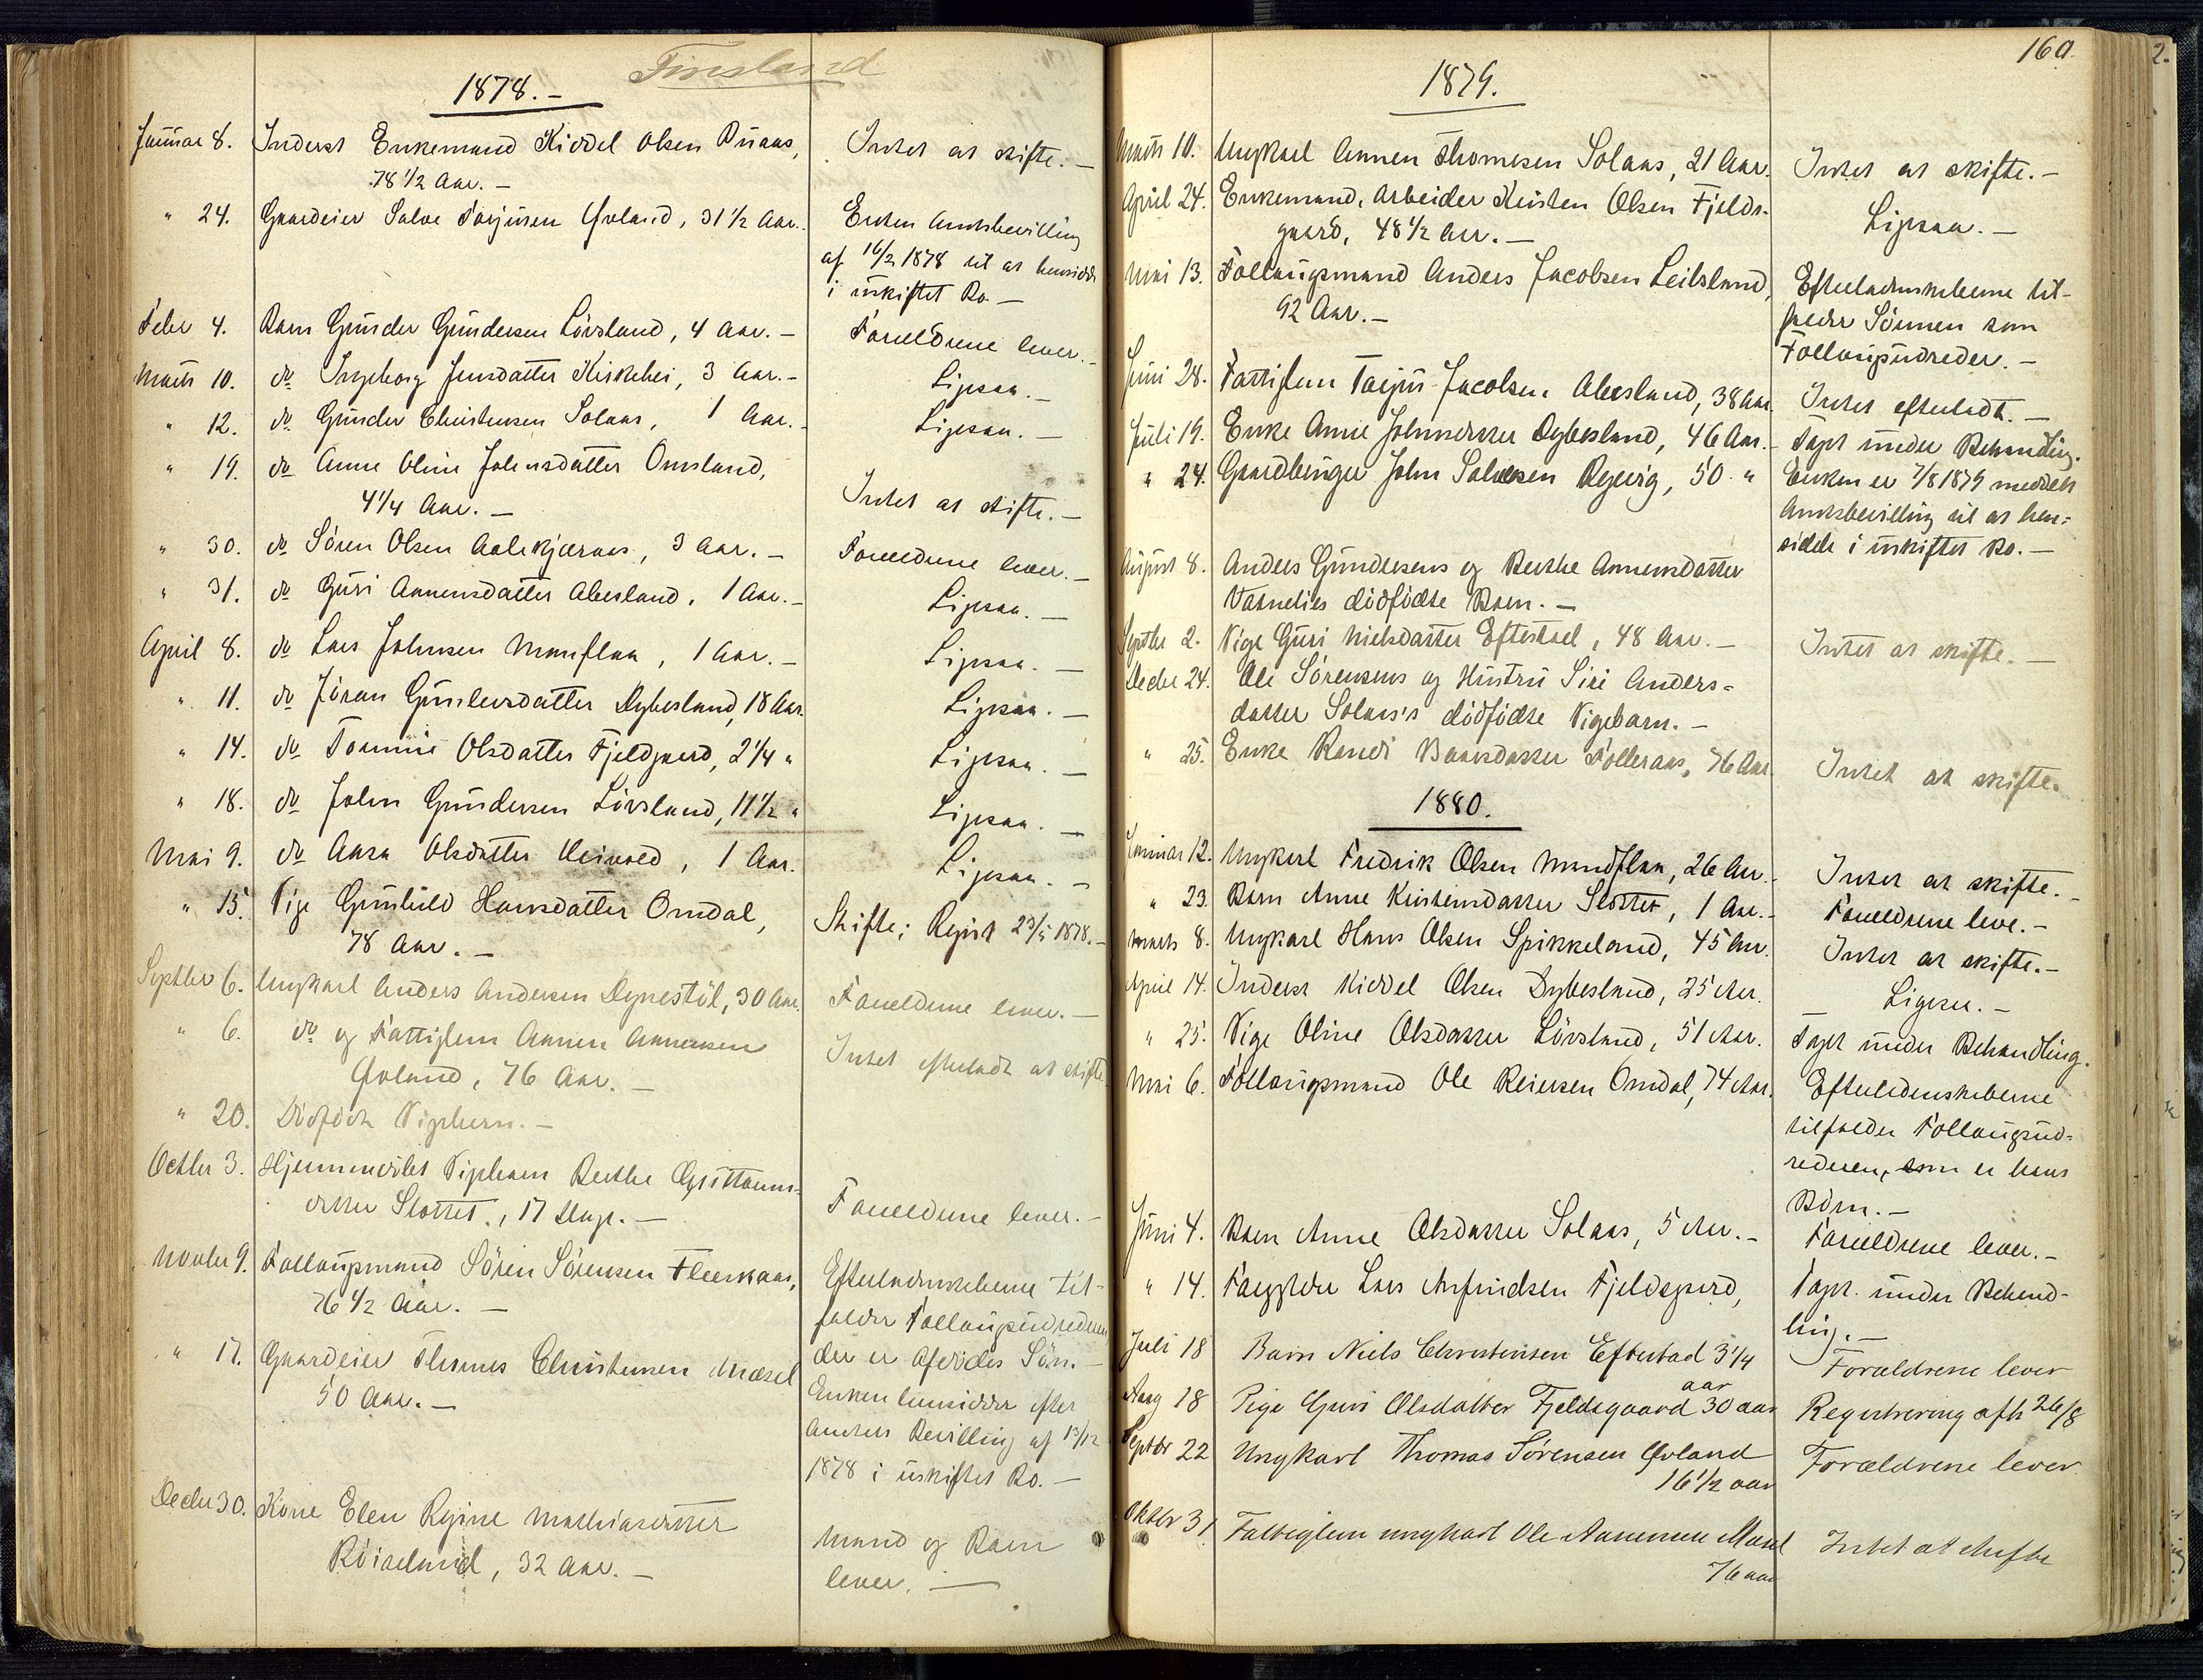 Finsland
1878.-
Januar 8. Inderst Enkemand Kiddel Olsen Duaas,
78 1/2 Aar.-
Intet at skifte.-
" 24. Gaardeier Salve Tarjusen Øvland, 31 1/2 Aar.
Enken Amtsbevilling
af 16/2 1878 til at hensidde
i uskiftet Bo.-
Febr 4. Barn Gunder Gundersen Lövsland, 4 Aar.-
Forældrene lever.-
Marts 10. do Ingeborg Jensdatter Kirkehei, 3 Aar.-
Ligesaa.-
" 12. do Gunder Christensen Solaas, 1 Aar.-
Ligesaa.-
" 19. do Anne Oline Johnsdatter Omland,
4 1/4 Aar.-
Intet at skifte.-
" 30. do Sören Olsen Aalekjæraas, 3 Aar.-
Forældrene lever.-
" 31. do Guri Aanensdatter Abesland, 1 Aar.-
Ligesaa.-
April 8. do Lars Johnsen Manflaa, 1 Aar.-
Ligesaa.-
" 11. do Jöran Gunlevsdatter Dybesland, 18 Aar.
Ligesaa.-
" 14. do Tomine Olsdatter Fjeldgaard, 2 1/4 "
Ligesaa.-
" 18. do John Gundersen Lövsland, 11 1/2 "
Ligesaa.-
Mai 9. do Aasa Olsdatter Heivold, 1 Aar.
Ligesaa.-
" 15. Pige Gunhild Hansdatter Omdal,
78 Aar.-
Skifte; Regist 23/5 1878.-
Septbr 6. Ungkarl Anders Andersen Dynestöl, 30 Aar.
Forældrene lever.-
" 6. do og Fattiglem Aanen Aanensen
Øvland, 76 Aar.-
Intet efterladt at skifte
" 20. Dödfödt Pigebarn.-
Octbr 3. Hjemmedöbt Pigebarn Berthe Guttorms-
datter Slottet, 17 Dage.-
Forældrene lever.-
Novbr 9. Follaugsmand Sören Sörensen Fleeskaas,
76 1/2 Aar.-
Efterladenskaberne til-
falder Follaugsudrederen,
der er Afdödes Sön.-
" 17. Gaardeier Thomas Christensen Mæsel
50 Aar.-
Enken hensidder efter
Amtets Bevilling af 13/12
1878 i uskiftet Bo.-
Decbr 30. Kone Elen Regine Mathiasdatter
Röiseland, 32 Aar.-
Mand og Barn
lever.-
160.
1879.
Marts 10. Ungkarl Aanen Thomesen Solaas, 21 Aar.
Intet at skifte.-
April 24. Enkemand, Arbeider Kristen Olsen Fjelds-
gaard, 48 1/2 Aar.-
Ligesaa.-
Mai 13. Follaugsmand Anders Jacobsen Leibsland,
92 Aar.-
Efterladenskaberne til-
falder Sönnen som
Follaugsudreder.-
Juni 28. Fattiglem Tarjus Jacobsen Abesland, 38 Aar.
Intet efterladt.-
Juli 19. Enke Anne Johnsdatter Dybesland, 46 Aar.-
Taget under Behandling.
" 24. Gaardbruger John Salvesen Rygvig, 50 "
Enken er 7/8 1879 meddelt
Amtsbevilling til at hen-
sidde i uskiftet Bo.-
August 8. Anders Gundersens og Berthe Aanensdatter
Vatnelies dödfödte Barn.-
Septbr 2. Pige Guri Nielsdatter Eftestad, 48 Aar.-
Intet at skifte.-
Decbr 24. Ole Sörensens og Hustru Siri Anders-
datter Solaas's dödfödte Pigebarn.-
" 25. Enke Randi Baardsdatter Folleraas, 76 Aar
Intet at skifte.
1880.
Januar 12. Ungkarl Fredrik Olsen Mandflaa, 26 Aar.
Intet at skifte.-
" 23. Barn Anne Kristensdatter Slottet, 1 Aar.-
Forældrene leve.-
Marts 8. Ungkarl Hans Olsen Spikkeland, 45 Aar.
Intet at skifte.-
April 14. Inderst Kiddel Olsen Dybesland, 25 Aar.
Ligesaa.-
" 25. Pige Oline Olsdatter Lövsland, 51 Aar.
Taget under Behandling.
Mai 6. Follaugsmand Ole Reiersen Omdal, 74 Aar.
Efterladenskaberne
tilfalder Follaugsud-
rederen, som er hans
Börn.-
Juni 4. Barn Anne Olsdatter Solaas, 5 Aar.-
Forældrene lever.-
" 14. Lars Arfindsen Fjeldsgaard,
Taget under Behand-
ling.-
Juli 18 Barn Niels Christensen Eftestad 3 1/4
aar
Forældrene lever
Aug 18 Pige Guri Olsdatter Fjeldsgaard 30 aar
Registrering afh 26/8
Septbr 22 Ungkarl Thomas Sørensen Øvland
16 1/2 aar
Forældrene lever.
Oktbr 31 Fattiglem ungkarl Ole Aanensen Mæsel
76 aar
Intet at skifte
2.